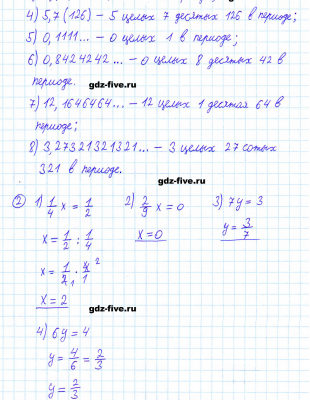 4) 5,7(126) – 5 целых 7 десятых 126 в периоде;
5) 0,1111... – 0 целых 1 в периоде;
6) 0,8424242... – 0 целых 8 десятых 42 в
периоде.
gdz-five.ru
7) 12,1646464... – 12 целых 1 десятая 64 в
периоде;
8) 3,27321321321... – 3 целых 27 сотых
321 в периоде.
gdz-five.ru
② 1) 1/4 x = 1/2 2) 2/9 x = 0 3) 7y = 3
x = 1/2 : 1/4 x = 0 y = 3/7
x = 1/2 1 · 4/1 2
x = 2
gdz-five.ru
4) 6y = 4
y = 4/6 = 2/3
y = 2/3